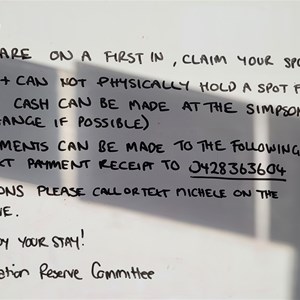 ARE ON A FIRST IN, CLAIM YOUR SPO
+ CAN NOT PHYSICALLY HOLD A SPOT F
CASH CAN BE MADE AT THE SIMPSON
ANGE IF POSSIBLE)
MENTS CAN BE MADE TO THE FOLLOWING
XT PAYMENT RECEIPT TO 0428363604
ONS PLEASE CALL OR TEXT MICHELE ON THE
VE.
OY YOUR STAY!
ation Reserve Committee